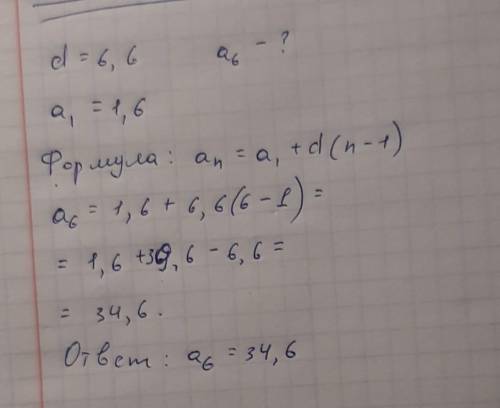 d = 6,6 a₆ - ?
a₁ = 1,6
Формула: aₙ = a₁ + d(n-1)
a₆ = 1,6 + 6,6(6-1) =
= 1,6 + 39,6 - 6,6 =
= 34,6.
Ответ: a₆ = 34,6